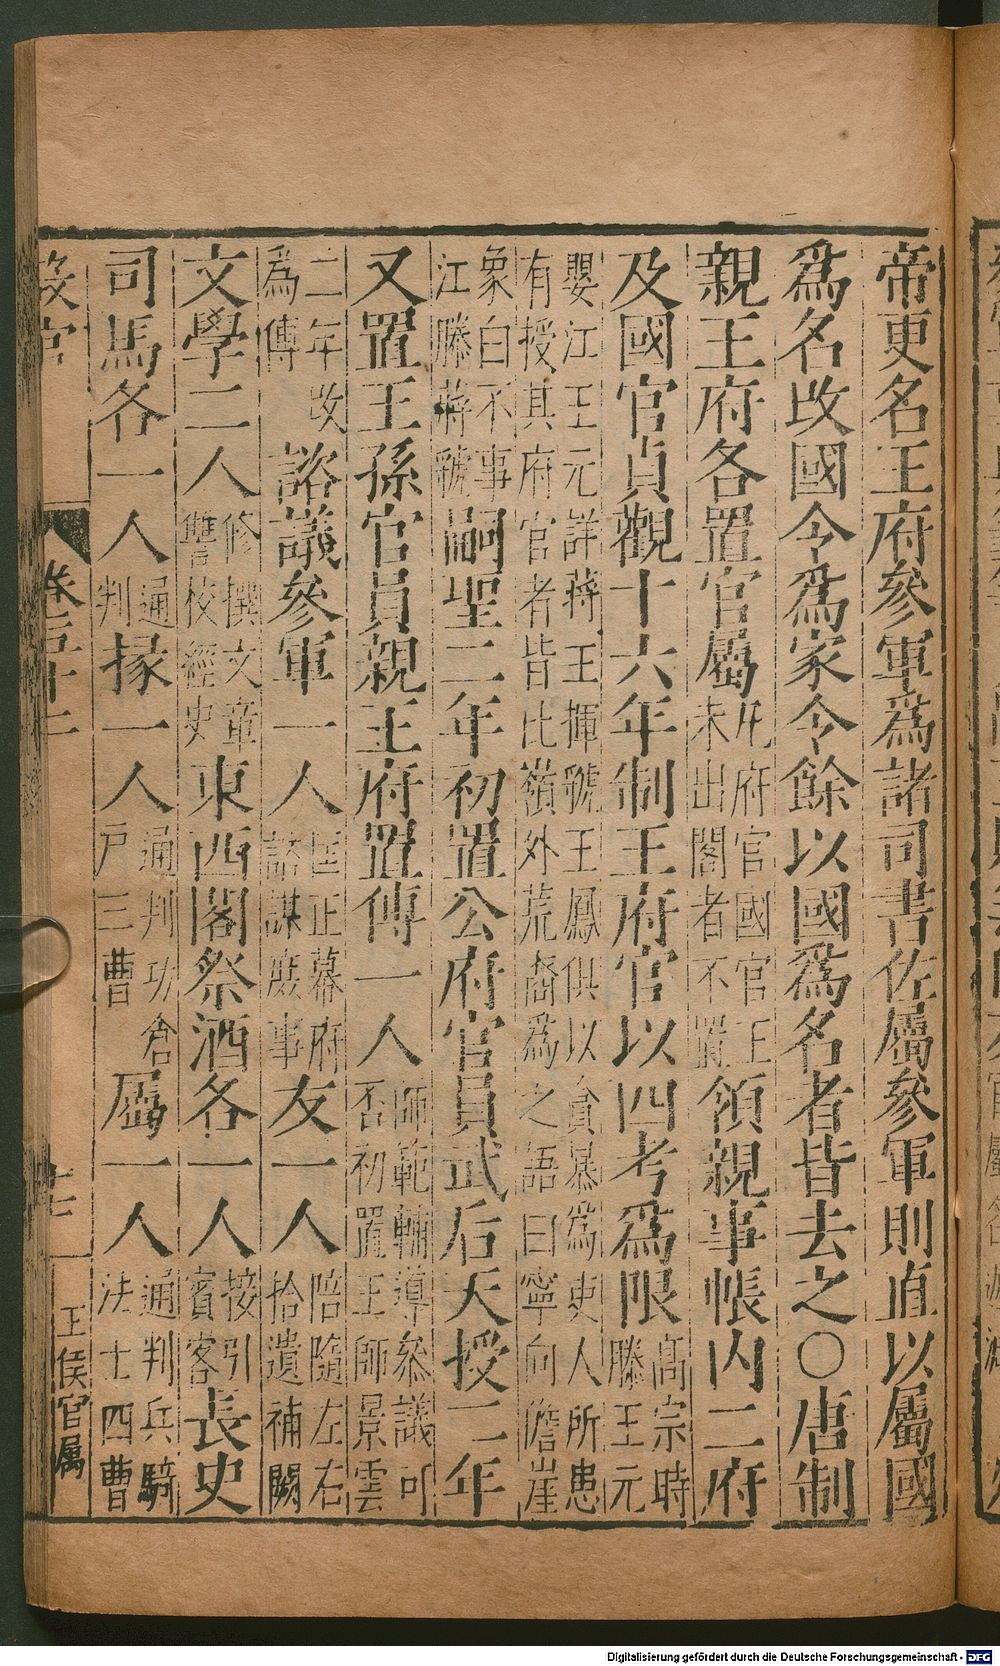 帝更名王府參軍爲諸司書佐屬參軍則直以屬國
爲名改國令爲家令餘以國爲名者皆去之○唐制
親王府各置官屬凡府官國官王未出閤者不置領親事帳內二府
及國官貞觀十六年制王府官以四考爲限高宗時滕王元
嬰江王元詳蔣王惲虢王鳳俱以貪暴爲吏人所患有授其府官者皆比嶺外荒裔爲之語曰寧向儋崖
象白不事江滕蔣虢嗣聖二年初置公府官員武后天授二年
又置王孫官員親王府置傅一人師範輔導參議可否初置王師景雲
二年改爲傅諮議參軍一人匡正幕府諮謀庶事友一人陪隨左右拾遺補闕
文學二人修撰文章讐校經史東西閣祭酒各一人接引賓客長史
司馬各一人通判掾一人通判功倉戶三曹屬一人通判兵騎法士四曹
設官
卷二百十二
王侯官属
Digitalisierung gefördert durch die Deutsche Forschungsgemeinschaft - DFG